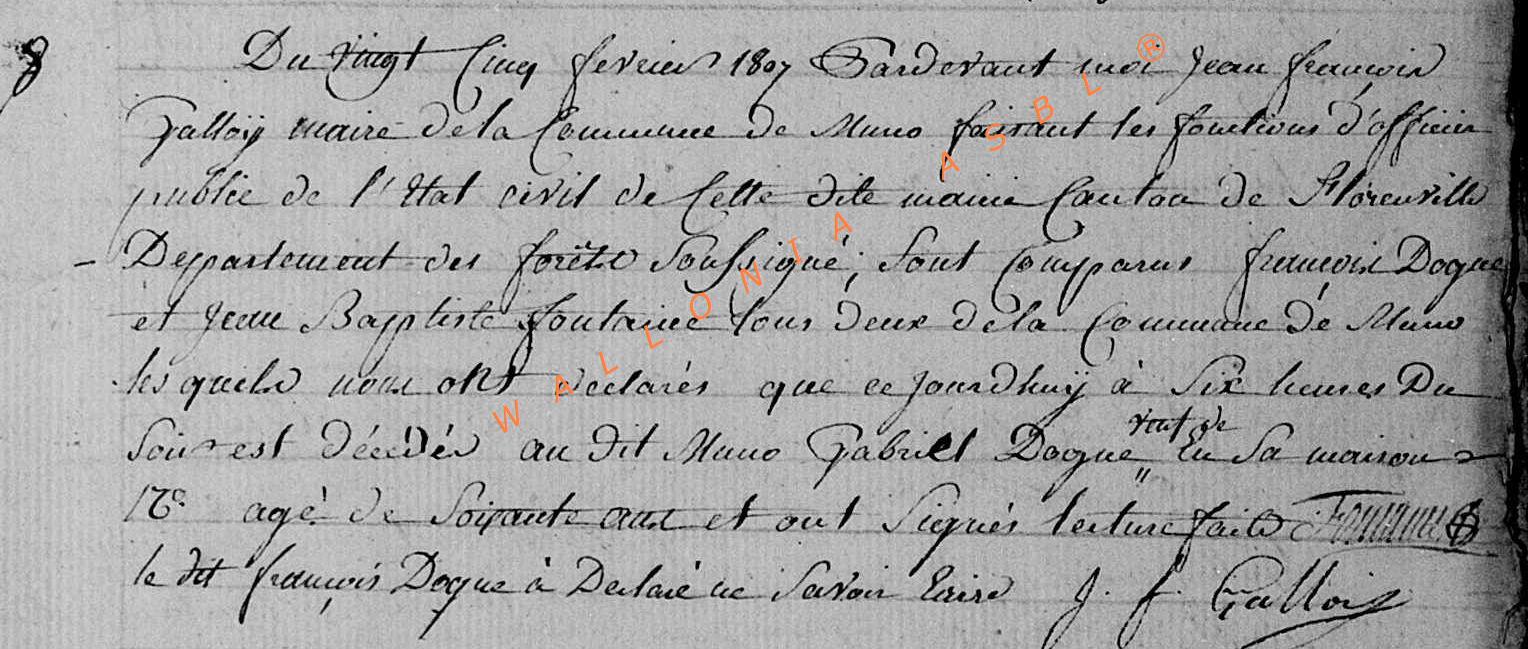 8 Du vingt Cinq fevrier 1807 Pardevant moi Jean françois
Galloÿ maire de la Commune de Muno faisant les fonctions d'officier
publice de l'État civil de Cette dite mairie Canton de Florenville
Departement des forêts Soussigné; Sont Comparus françois Dogue
et Jean Baptiste fontaine tous deux de la Commune de Muno
lesquels nous ont declarés que ce Jourdhuÿ à Six heures Du
Soir est décédé au dit Muno Gabriel Dogue En Sa maison
agé de Soixante ans et ont Signés lecture faite Fontaine
le dit françois Dogue à Declaré ne Savoir Ecrire J. f. Gallois
WALLONIA ASBL ®